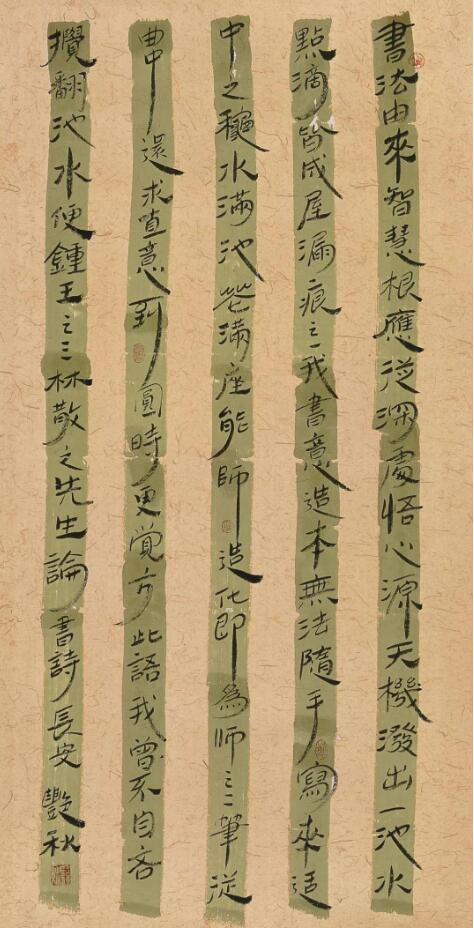 書法由來智慧根應從深處悟心源天機潑出一池水
點滴皆成屋漏痕之一我書意造本無法隨手寫來適
中之龝水滿池花滿座能師造化即為師之二筆從
曲中還求直意到圓時更覺方此語我曾不自吝
攪翻池水便鍾王之三林散之先生論書詩長安艷秋